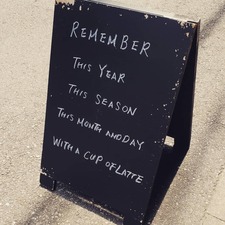 REMEMBER
THIS YEAR
THIS SEASON
THIS MONTH AND DAY
WITH A CUP OF LATTE